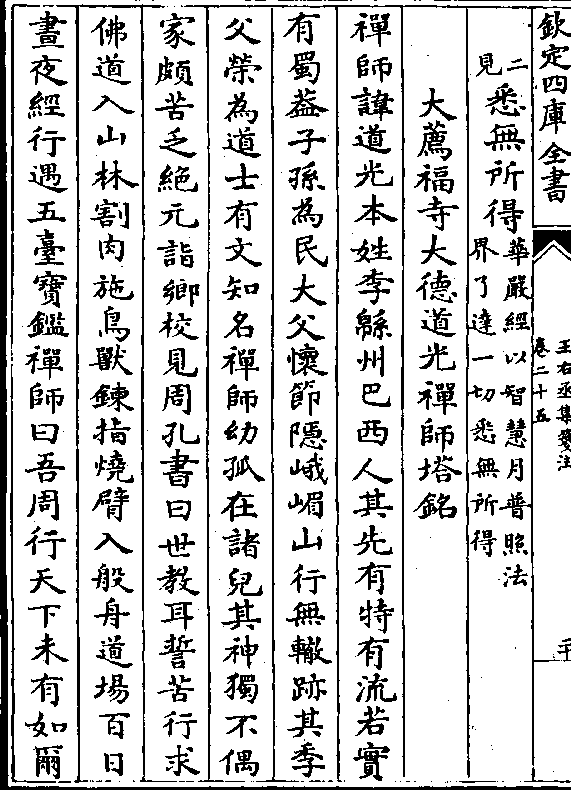 欽定四庫全書
王右丞集箋注
卷二十五
二十
二見悉無所得華嚴經以智慧月普照法界了達一切悉無所得
大薦福寺大德道光禪師塔銘
禪師諱道光本姓李緜州巴西人其先有特有流若實
有蜀葢子孫為民大父懷節隱峨嵋山行無轍跡其季
父榮為道士有文知名禪師幼孤在諸兒其神獨不偶
家頗苦乏絕元詣鄉校見周孔書曰世教耳誓苦行求
佛道入山林割肉施鳥獸鍊指燒臂入般舟道場百日
晝夜經行遇五臺寶鑑禪師曰吾周行天下未有如爾